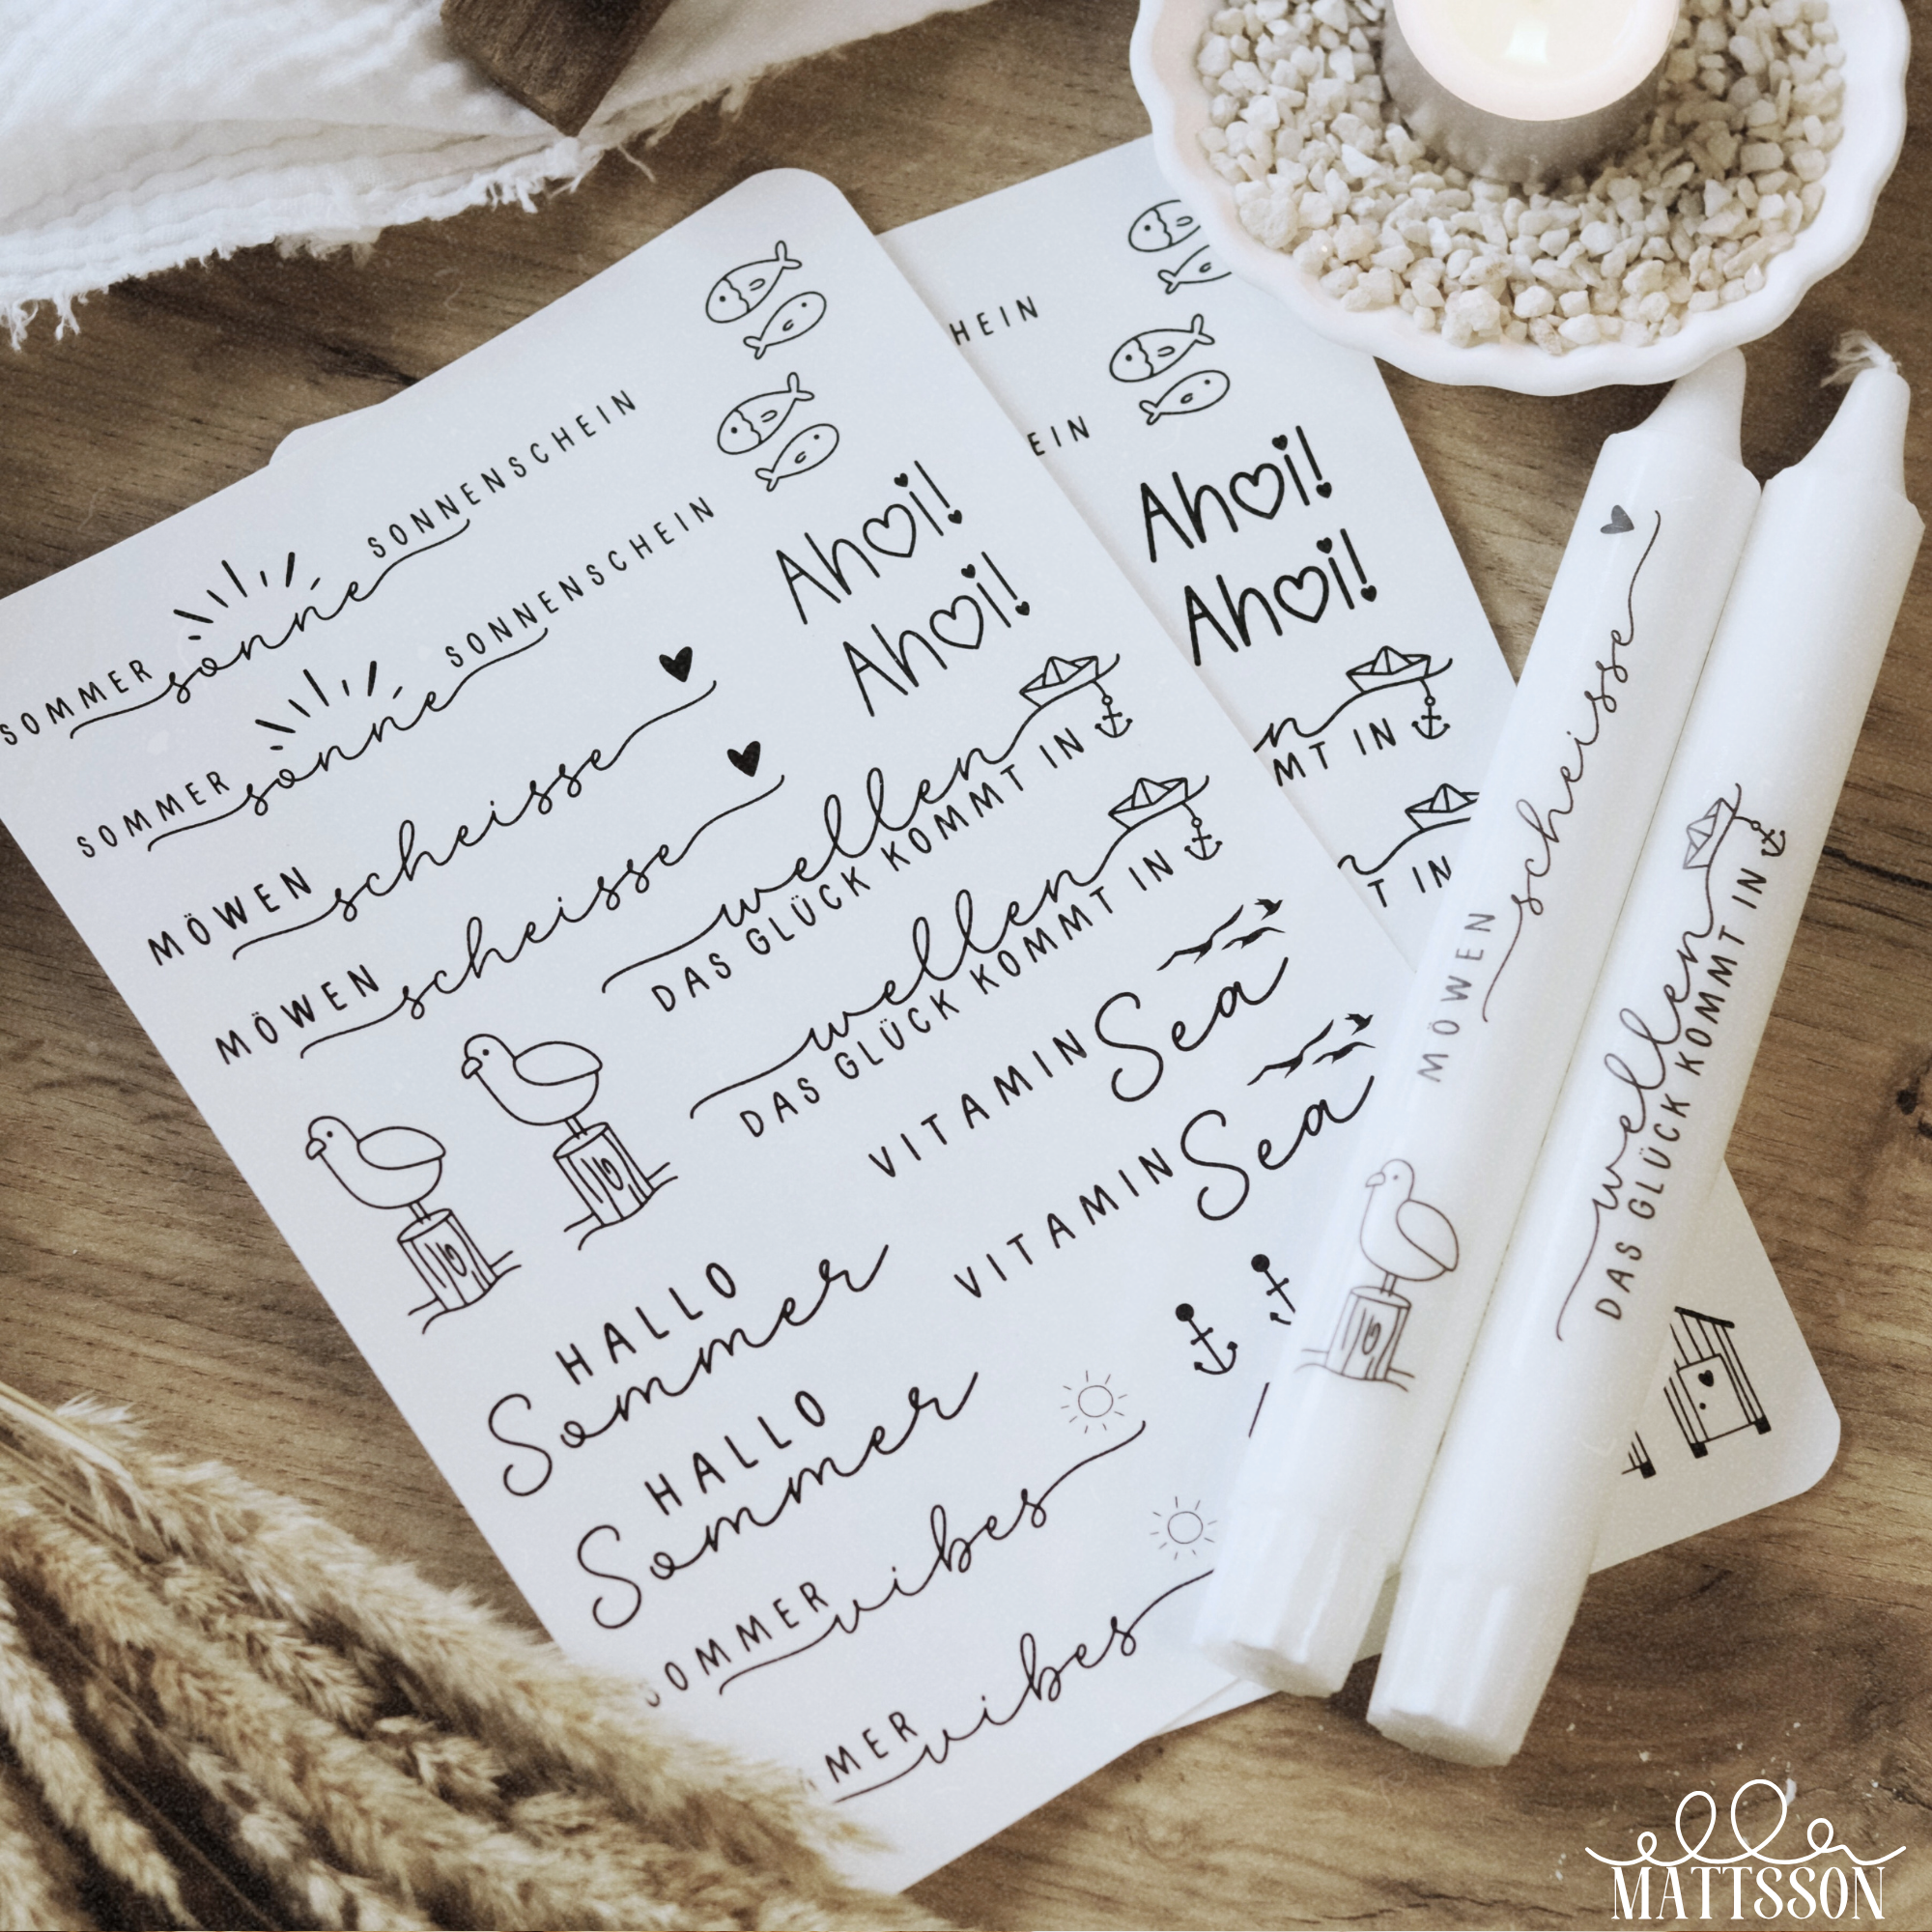 SOMMER sonne SONNENSCHEIN
SOMMER sonne SONNENSCHEIN
MÖWEN scheisse
MÖWEN scheisse
Ahoi!
Ahoi!
wellen
DAS GLÜCK KOMMT IN
wellen
DAS GLÜCK KOMMT IN
VITAMIN Sea
VITAMIN Sea
HALLO
Sommer
HALLO
Sommer
SOMMER vibes
MER vibes
HEIN
EIN
Ahoi!
Ahoi!
n
MT IN
T IN
MÖWEN scheisse
wellen
DAS GLÜCK KOMMT IN
ella
MATTSSON